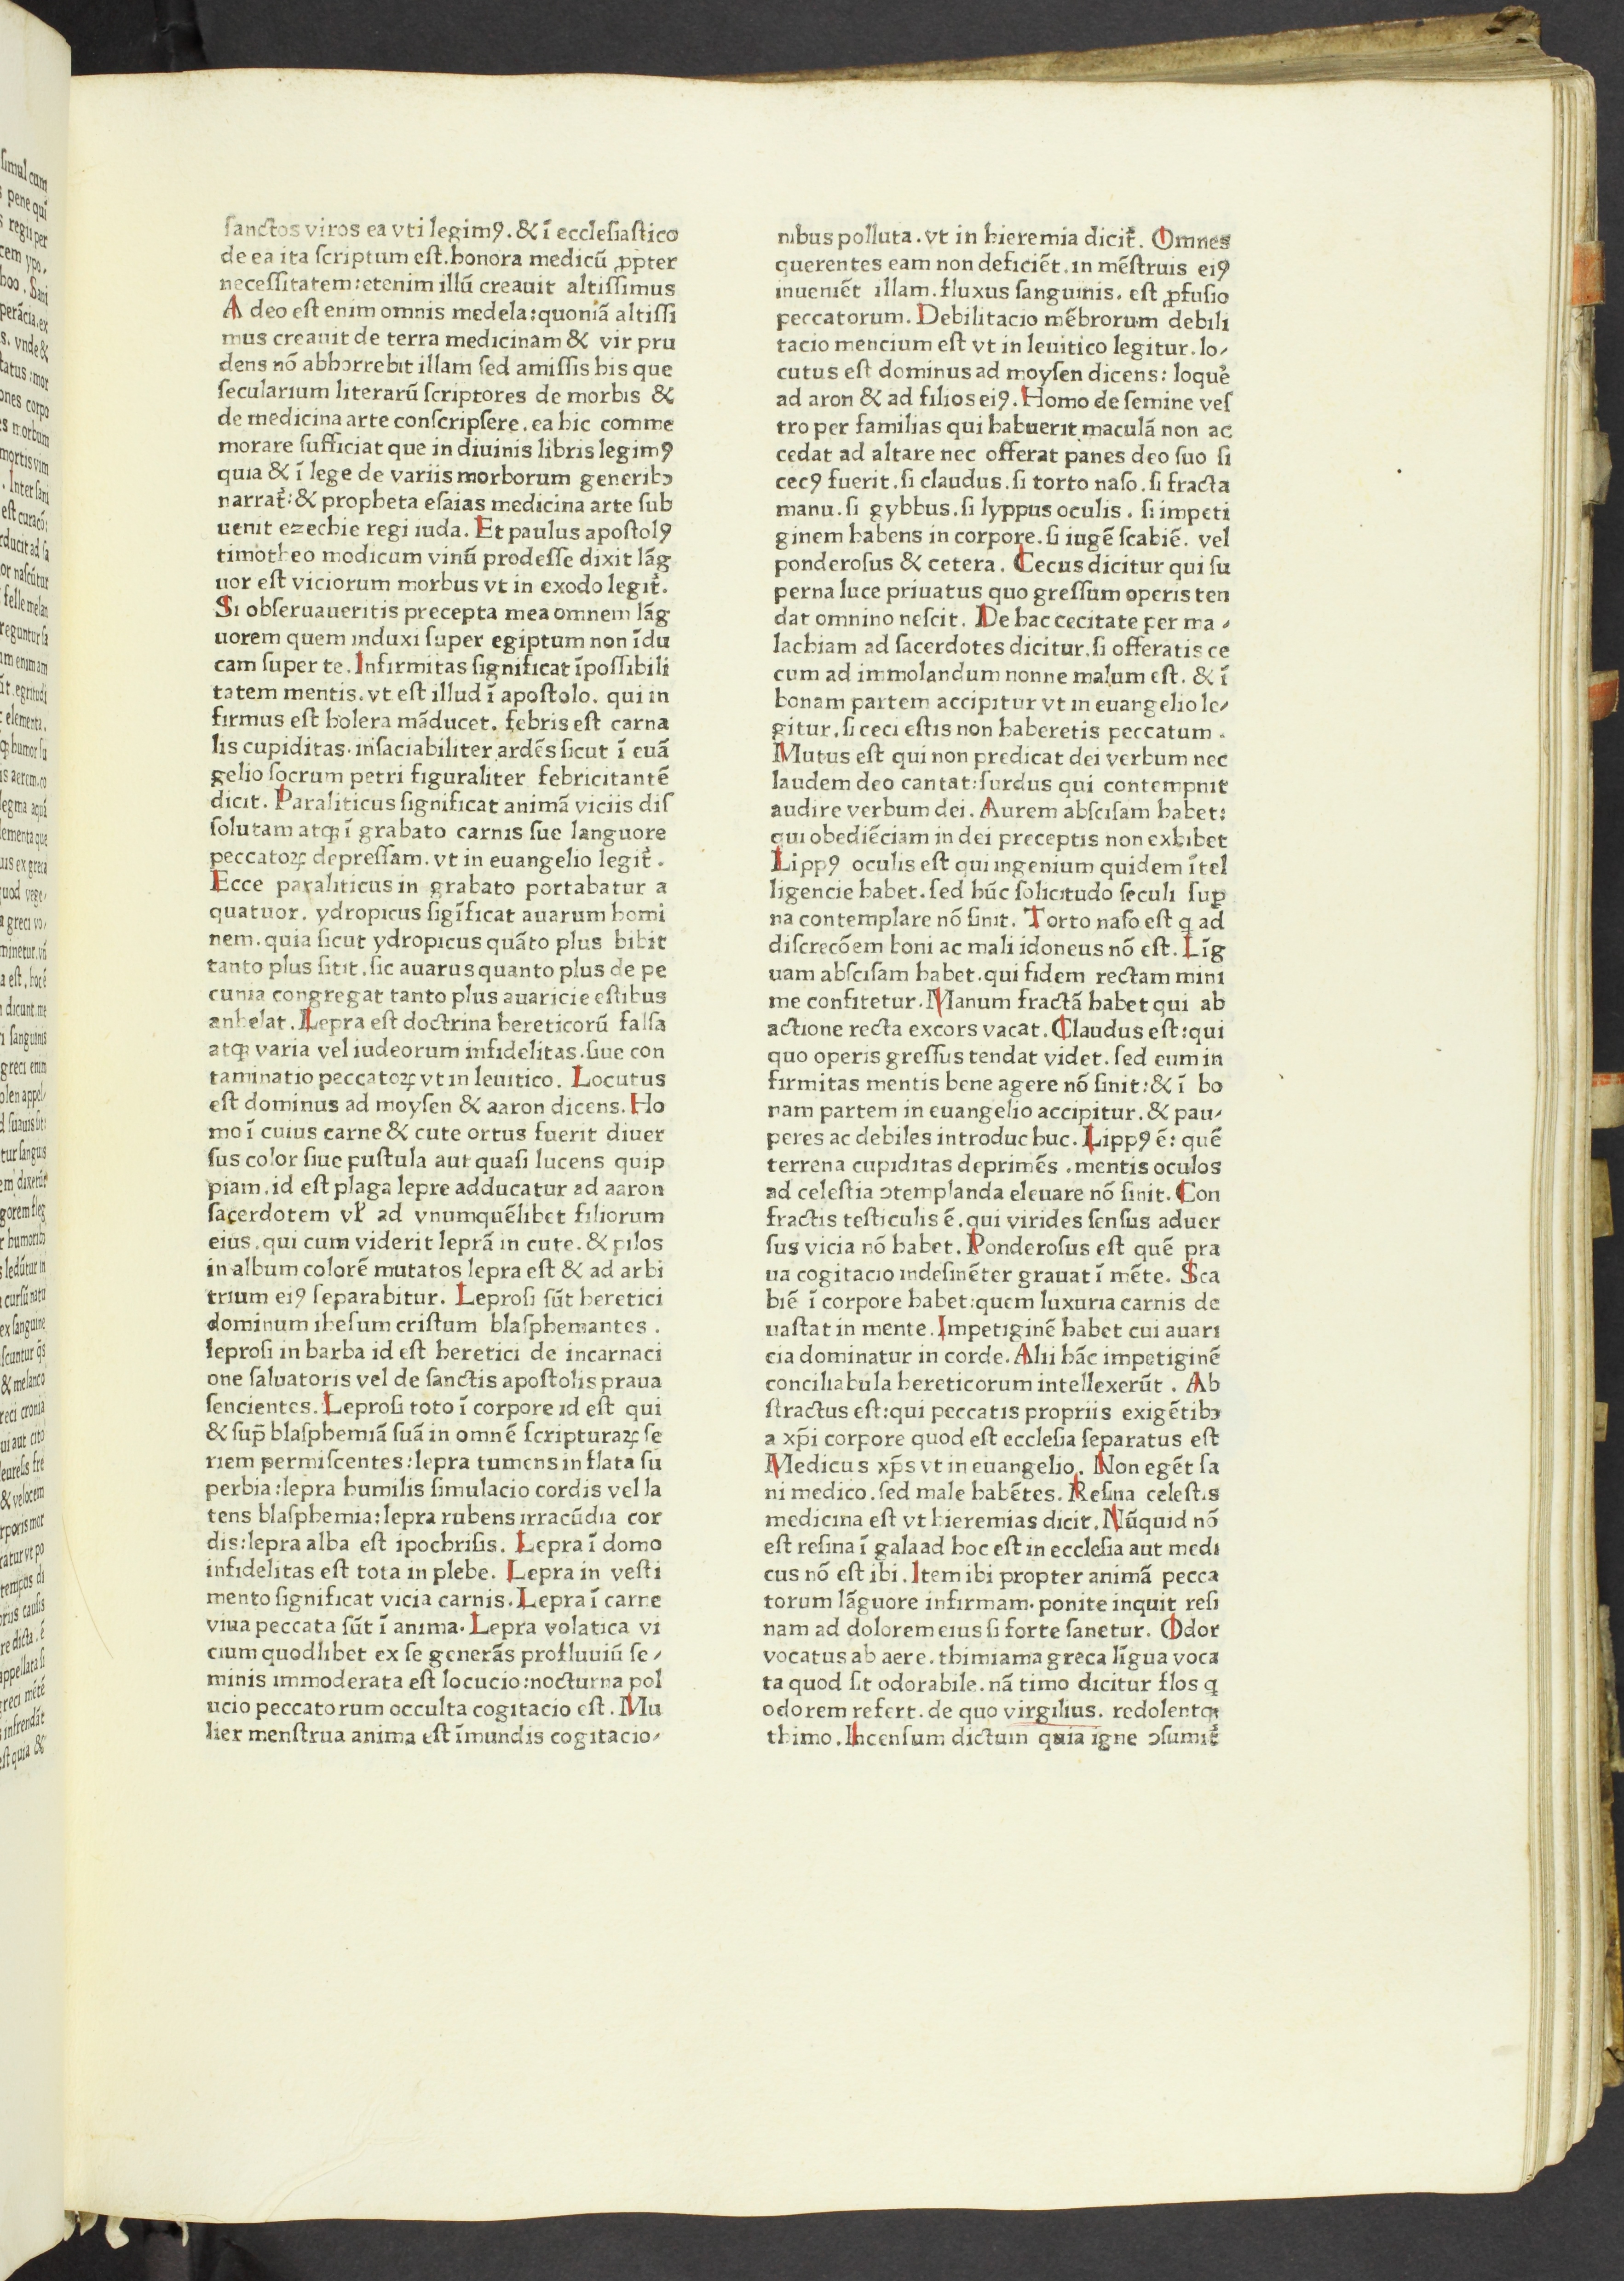 sanctos viros ea vti legimꝰ. & ī ecclesiastico
de ea ita scriptum est. honora medicū ꝓpter
necessitatem: etenim illū creauit altissimus
A deo est enim omnis medela: quoniā altissi
mus creauit de terra medicinam & vir pru
dens nō abhorrebit illam sed amissis his que
secularium literarū scriptores de morbis &
de medicina arte conscripsere. ea hic comme
morare sufficiat que in diuinis libris legimꝰ
quia & ī lege de variis morborum generibɔ
narrat᷑: & propheta esaias medicina arte sub
uenit ezechie regi iuda. Et paulus apostolꝰ
timotheo modicum vinū prodesse dixit lāg
uor est viciorum morbus vt in exodo legit᷑.
Si obseruaueritis precepta mea omnem lāg
uorem quem induxi super egiptum non īdu
cam super te. Infirmitas significat īpossibili
tatem mentis. vt est illud ī apostolo. qui in
firmus est holera māducet. febris est carna
lis cupiditas. insaciabiliter ardēs sicut ī euā
gelio socrum petri figuraliter febricitantē
dicit. Paraliticus significat animā viciis dis
solutam atqꝫ ī grabato carnis sue languore
peccatoꝝ depressam. vt in euangelio legit᷑.
Ecce paraliticus in grabato portabatur a
quatuor. ydropicus sigīficat auarum homi
nem. quia sicut ydropicus quāto plus bibit
tanto plus sitit. sic auarus quanto plus de pe
cunia congregat tanto plus auaricie estibus
anhelat. Lepra est doctrina hereticorū falsa
atqꝫ varia vel iudeorum infidelitas. siue con
taminatio peccatoꝝ vt in leuitico. Locutus
est dominus ad moysen & aaron dicens. Ho
mo ī cuius carne & cute ortus fuerit diuer
sus color siue pustula aut quasi lucens quip
piam. id est plaga lepre adducatur ad aaron
sacerdotem vƚ ad vnumquēlibet filiorum
eius. qui cum viderit leprā in cute. & pilos
in album colorē mutatos lepra est & ad arbi
trium eiꝰ separabitur. Leprosi sūt heretici
dominum ihesum cristum blasphemantes.
leprosi in barba id est heretici de incarnaci
one saluatoris vel de sanctis apostolis praua
sencientes. Leprosi toto ī corpore id est qui
& sup̄ blasphemiā suā in omnē scripturaꝝ se
riem permiscentes: lepra tumens inflata su
perbia: lepra humilis simulacio cordis vel la
tens blasphemia: lepra rubens irracūdia cor
dis: lepra alba est ipochrisis. Lepra ī domo
infidelitas est tota in plebe. Lepra in vesti
mento significat vicia carnis. Lepra ī carne
viua peccata sūt ī anima. Lepra volatica vi
cium quodlibet ex se generās profluuiū se⸗
minis immoderata est locucio: nocturna pol
ucio peccatorum occulta cogitacio est. Mu
lier menstrua anima est īmundis cogitacio⸗
nibus polluta. vt in hieremia dicit᷑. Omnes
querentes eam non deficiēt. in mēstruis eiꝰ
inueniēt illam. fluxus sanguinis. est ꝓfusio
peccatorum. Debilitacio mēbrorum debili
tacio mencium est vt in leuitico legitur. lo⸗
cutus est dominus ad moysen dicens: loque᷑
ad aron & ad filios eiꝰ. Homo de semine ves
tro per familias qui habuerit maculā non ac
cedat ad altare nec offerat panes deo suo si
cecꝰ fuerit. si claudus. si torto naso. si fracta
manu. si gybbus. si lyppus oculis. si impeti
ginem habens in corpore. si iugē scabiē. vel
ponderosus & cetera. Cecus dicitur qui su
perna luce priuatus quo gressum operis ten
dat omnino nescit. De hac cecitate per ma⸗
lachiam ad sacerdotes dicitur. si offeratis ce
cum ad immolandum nonne malum est. & ī
bonam partem accipitur vt in euangelio le⸗
gitur. si ceci estis non haberetis peccatum.
Mutus est qui non predicat dei verbum nec
laudem deo cantat: surdus qui contempnit
audire verbum dei. Aurem abscisam habet:
qui obediēciam in dei preceptis non exhibet
Lippꝰ oculis est qui ingenium quidem ītel
ligencie habet. sed hūc solicitudo seculi suꝑ
na contemplare nō sinit. Torto naso est q̨ ad
discrecōem boni ac mali idoneus nō est. Līg
uam abscisam habet. qui fidem rectam mini
me confitetur. Manum fractā habet qui ab
actione recta excors vacat. Claudus est: qui
quo operis gressus tendat videt. sed eum in
firmitas mentis bene agere nō sinit: & ī bo
nam partem in euangelio accipitur. & pau⸗
peres ac debiles introduc huc. Lippꝰ ē: quē
terrena cupiditas deprimēs. mentis oculos
ad celestia ɔtemplanda eleuare nō sinit. Con
fractis testiculis ē. qui virides sensus aduer
sus vicia nō habet. Ponderosus est quē pra
ua cogitacio indesinēter grauat ī mēte. Sca
biē ī corpore habet: quem luxuria carnis de
uastat in mente. Impetiginē habet cui auari
cia dominatur in corde. Alii hāc impetiginē
conciliabula hereticorum intellexerūt. Ab
stractus est: qui peccatis propriis exigētibɔ
a xp̄i corpore quod est ecclesia separatus est
Medicus xp̄s vt in euangelio. Non egēt sa
ni medico. sed male habētes. Resina celestis
medicina est vt hieremias dicit. Nūquid nō
est resina ī galaad hoc est in ecclesia aut medi
cus nō est ibi. Item ibi propter animā pecca
torum lāguore infirmam. ponite inquit resi
nam ad dolorem eius si forte sanetur. Odor
vocatus ab aere. thimiama greca līgua voca
ta quod sit odorabile. nā timo dicitur flos q̨
odorem refert. de quo virgilius. redolentqꝫ
thimo. Incensum dictum quia igne ɔsumit᷑